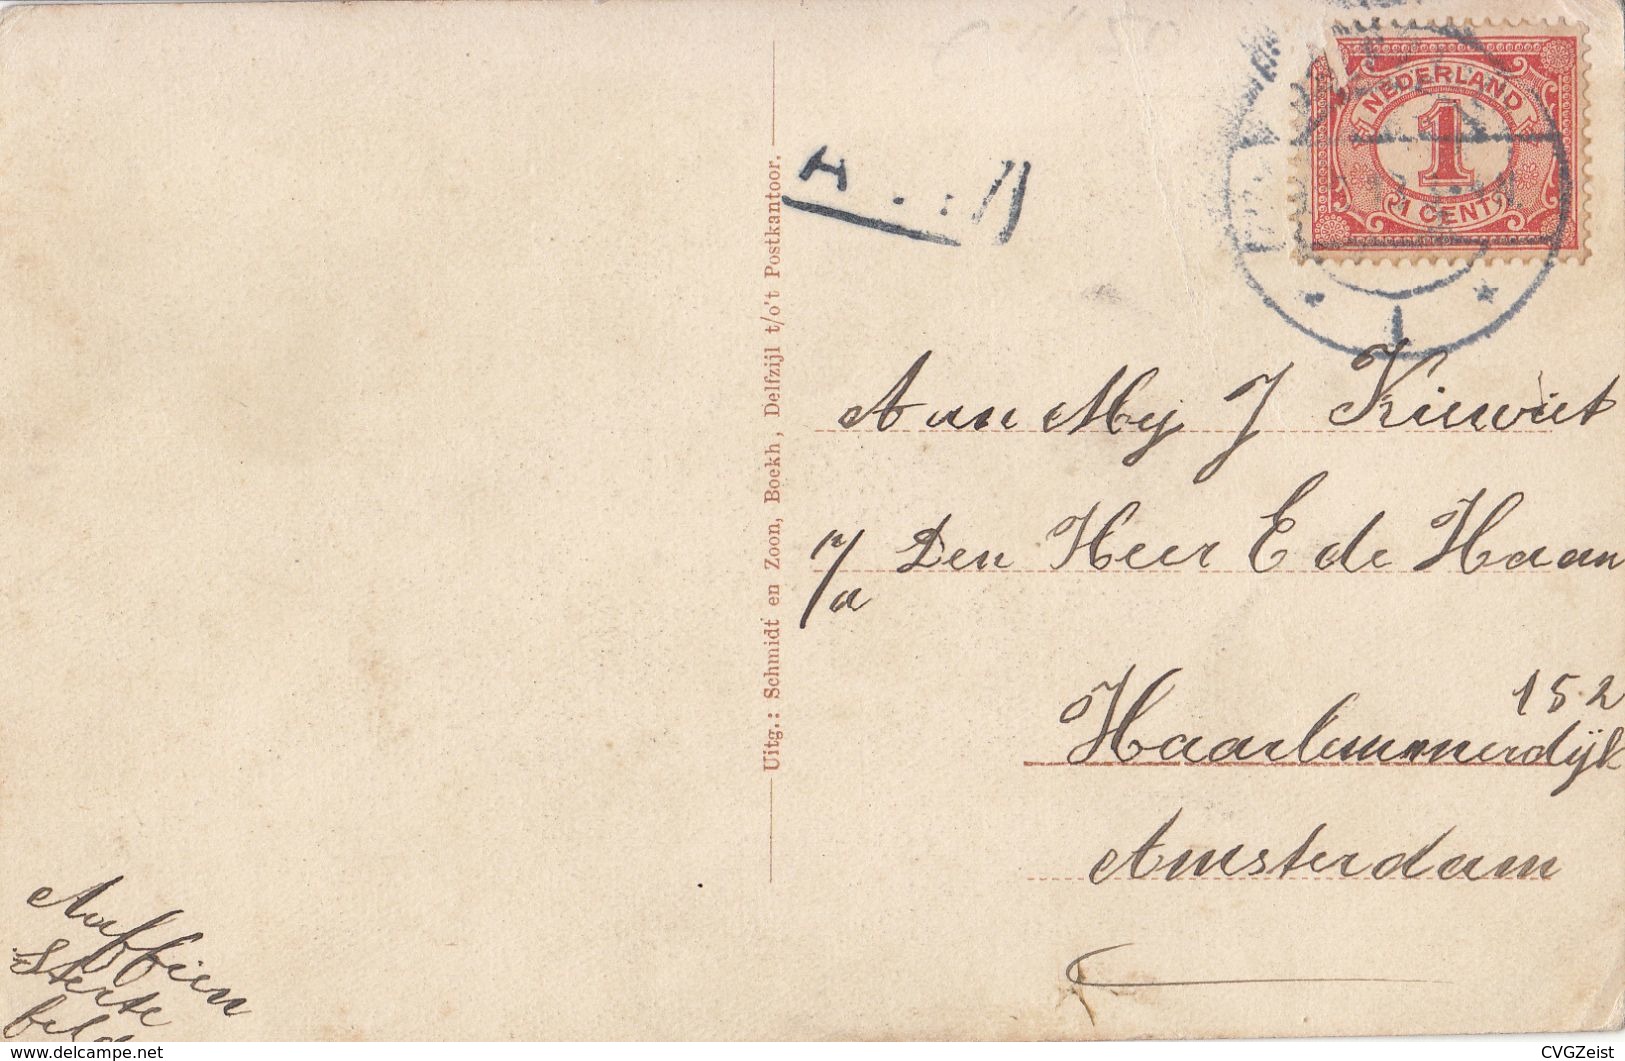 NEDERLAND
1
1 CENT
A
Uitg.: Schmidt en Zoon, Boekh, Delfzijl t/o't Postkantoor.
Aan Mej J Kieviet
p/a Den Heer E de Haan
152
Haarlemmerdijk
Amsterdam
CVGZeist
delcampe.net